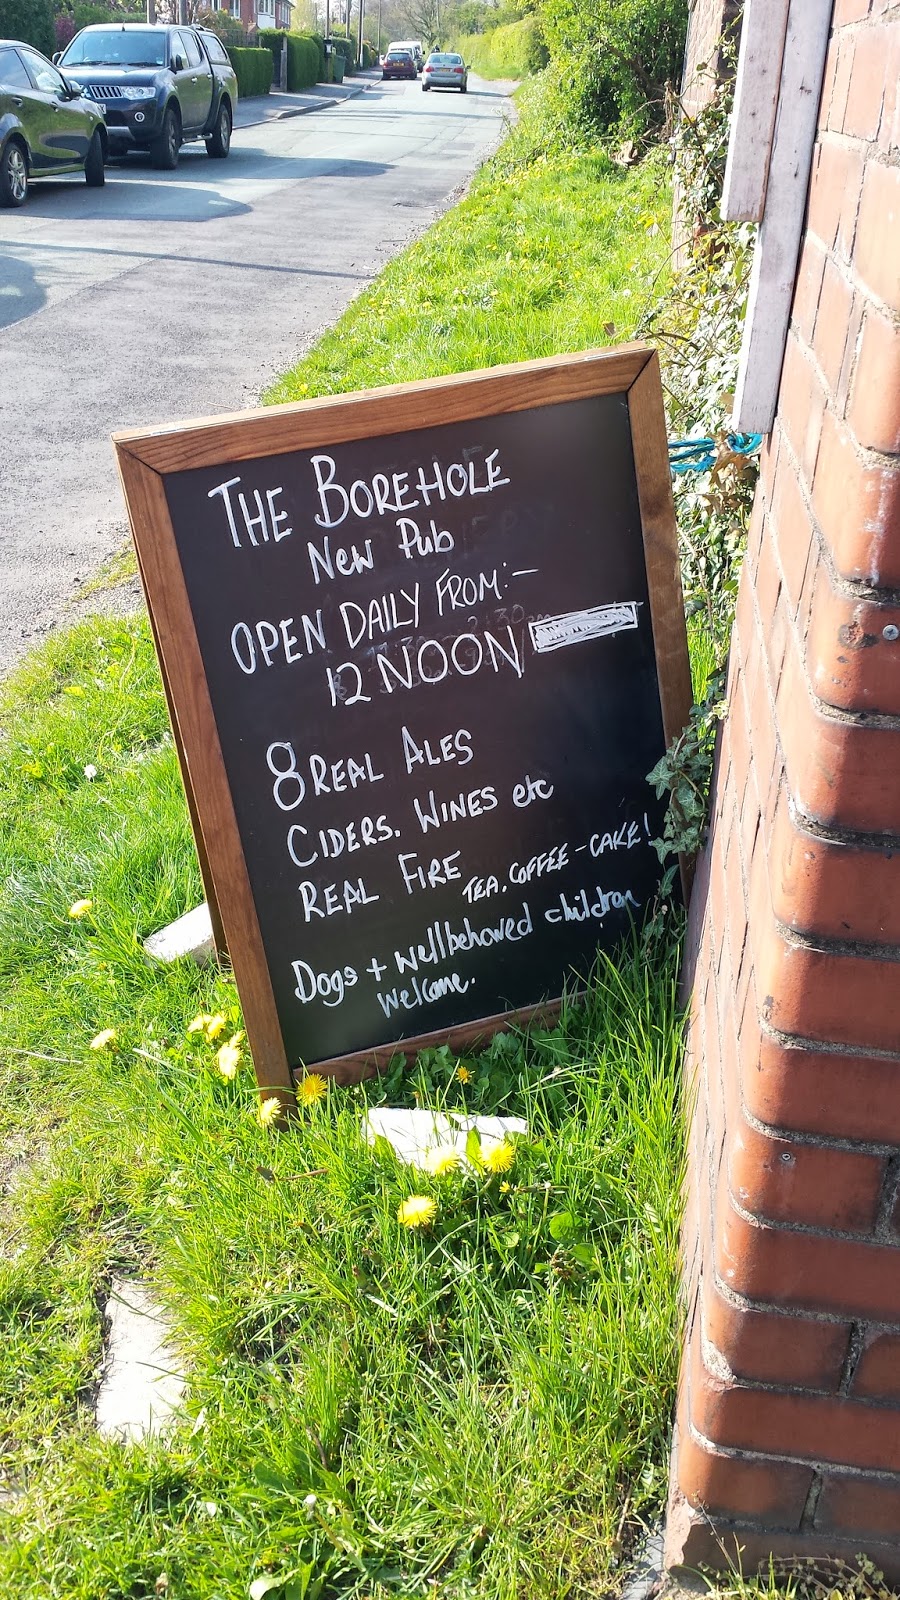 THE BOREHOLE
New Pub
OPEN DAILY FROM:-
12 NOON
8 REAL ALES
CIDERS. WINES etc
REAL FIRE TEA. COFFEE - CAKE!
Dogs + wellbehaved children
Welcome.